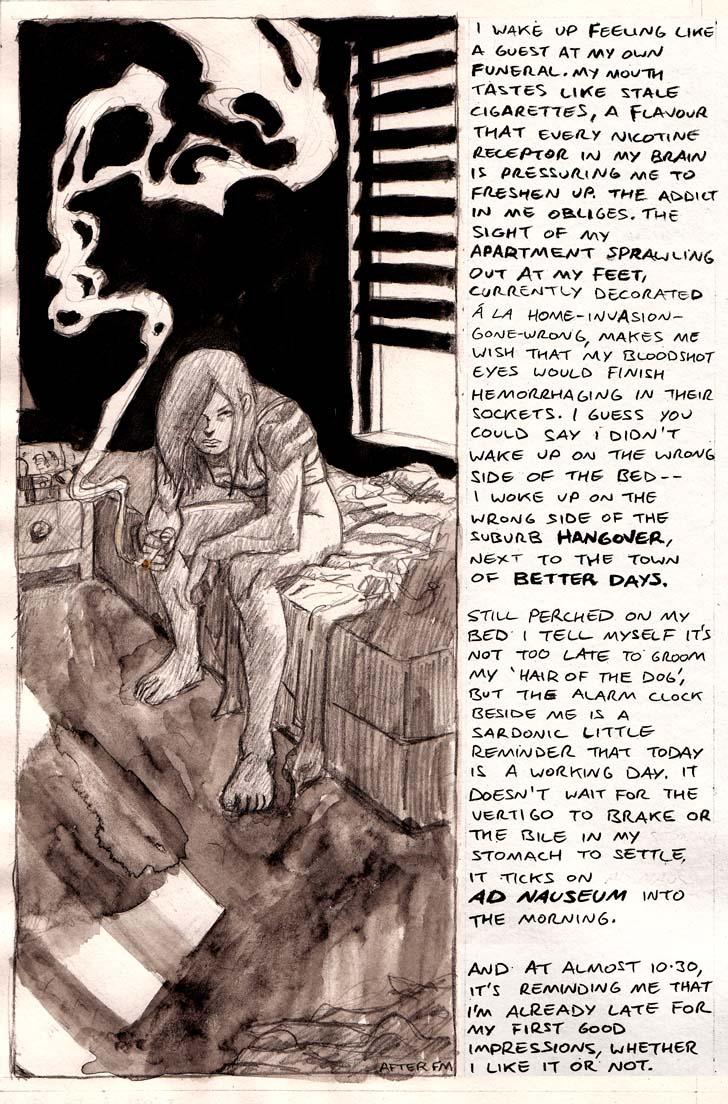 I WAKE UP FEELING LIKE
A GUEST AT MY OWN
FUNERAL. MY MOUTH
TASTES LIKE STALE
CIGARETTES, A FLAVOUR
THAT EVERY NICOTINE
RECEPTOR IN MY BRAIN
IS PRESSURING ME TO
FRESHEN UP. THE ADDICT
IN ME OBLIGES. THE
SIGHT OF MY
APARTMENT SPRAWLING
OUT AT MY FEET,
CURRENTLY DECORATED
Á LA HOME-INVASION-
GONE-WRONG, MAKES ME
WISH THAT MY BLOODSHOT
EYES WOULD FINISH
HEMORRHAGING IN THEIR
SOCKETS. I GUESS YOU
COULD SAY I DIDN'T
WAKE UP ON THE WRONG
SIDE OF THE BED--
I WOKE UP ON THE
WRONG SIDE OF THE
SUBURB HANGOVER,
NEXT TO THE TOWN
OF BETTER DAYS.
STILL PERCHED ON MY
BED I TELL MYSELF IT'S
NOT TOO LATE TO GROOM
MY 'HAIR OF THE DOG',
BUT THE ALARM CLOCK
BESIDE ME IS A
SARDONIC LITTLE
REMINDER THAT TODAY
IS A WORKING DAY. IT
DOESN'T WAIT FOR THE
VERTIGO TO BRAKE OR
THE BILE IN MY
STOMACH TO SETTLE,
IT TICKS ON
AD NAUSEUM INTO
THE MORNING.
AND AT ALMOST 10.30,
IT'S REMINDING ME THAT
I'M ALREADY LATE FOR
MY FIRST GOOD
IMPRESSIONS, WHETHER
I LIKE IT OR NOT.
AFTER FM